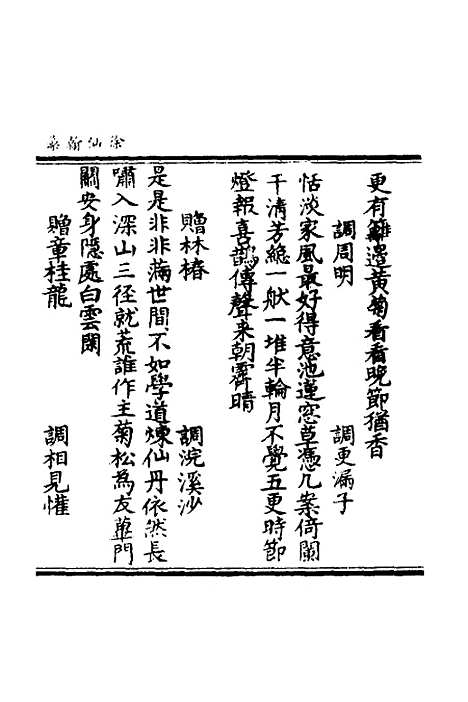 徐仙翰藻
更有籬邊黃菊看看晚節猶香
調周明　調更漏子
恬淡家風最好得意池蓮窓草憑几案倚闌
干清芳總一般一堆半輪月不覺五更時節
燈報喜鵲傳聲来朝霽晴
贈林椿　調浣溪沙
是是非非滿世間不如學道煉仙丹依然長
嘯入深山三径就荒誰作主菊松為友蓽門
關安身隱處白雲閑
贈章桂龍　調相見懽